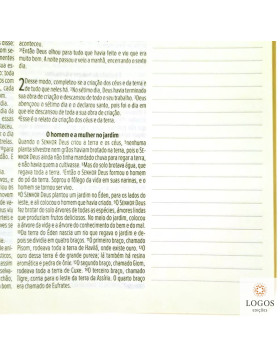 aconteceu.
³¹Então Deus olhou para tudo que havia feito e viu que era
muito bom. A noite passou e veio a manhã, encerrando o sexto
dia.
2 Desse modo, completou-se a criação dos céus e da terra e
de tudo que neles há. ²No sétimo dia, Deus havia terminado
sua obra de criação e descansou de todo o seu trabalho. ³Deus
abençoou o sétimo dia e o declarou santo, pois foi o dia em
que ele descansou de toda a sua obra de criação.
⁴Esse é o relato da criação dos céus e da terra.
O homem e a mulher no jardim
Quando o SENHOR Deus criou a terra e os céus, ⁵nenhuma
planta silvestre nem grãos haviam brotado na terra, pois o SE-
NHOR Deus ainda não tinha mandado chuva para regar a terra,
e não havia quem a cultivasse. ⁶Mas do solo brotava água, que
regava toda a terra. ⁷Então o SENHOR Deus formou o homem
do pó da terra. Soprou o fôlego da vida em suas narinas, e o
homem se tornou ser vivo.
⁸O SENHOR Deus plantou um jardim no Éden, para os lados do
leste, e ali colocou o homem que havia criado. ⁹O SENHOR Deus
fez brotar do solo árvores de todas as espécies, árvores lindas
que produziam frutos deliciosos. No meio do jardim, colocou
a árvore da vida e a árvore do conhecimento do bem e do mal.
¹⁰Da terra do Éden nascia um rio que regava o jardim e de-
pois se dividia em quatro braços. ¹¹O primeiro braço, chamado
Pisom, rodeava toda a terra de Havilá, onde existe ouro. ¹²O
ouro dessa terra é de grande pureza; lá também há resina
aromática e pedra de ônix. ¹³O segundo braço, chamado Giom,
rodeava toda a terra de Cuxe. ¹⁴O terceiro braço, chamado
Tigre, corria para o leste da terra da Assíria. O quarto braço
era chamado de Eufrates.
LOGOS
EDIÇÕES